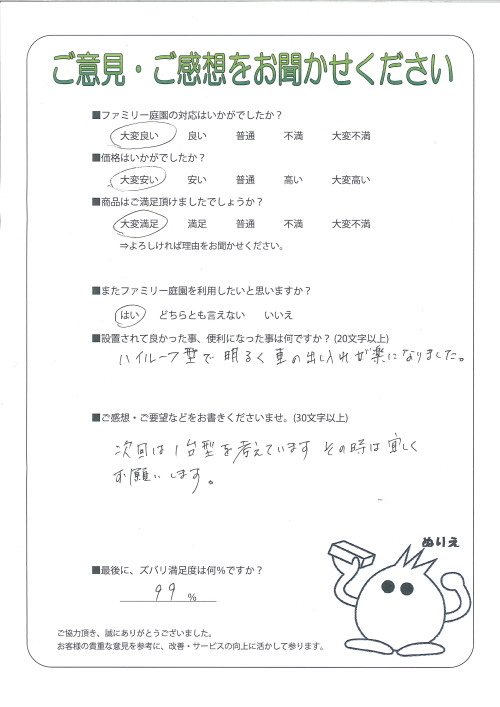 ご意見・ご感想をお聞かせください
■ファミリー庭園の対応はいかがでしたか？
大変良い 良い 普通 不満 大変不満
■価格はいかがでしたか？
大変安い 安い 普通 高い 大変高い
■商品はご満足頂けましたでしょうか？
大変満足 満足 普通 不満 大変不満
⇒よろしければ理由をお聞かせください。
■またファミリー庭園を利用したいと思いますか？
はい どちらとも言えない いいえ
■設置されて良かった事、便利になった事は何ですか？(20文字以上)
ハイルーフ型で明るく車の出し入れが楽になりました。
■ご感想・ご要望などをお書きくださいませ。(30文字以上)
次回は1台型を考えています その時は宜しく
お願いします。
ぬりえ
■最後に、ズバリ満足度は何%ですか？
99 %
ご協力頂き、誠にありがとうございました。
お客様の貴重な意見を参考に、改善・サービスの向上に活かして参ります。